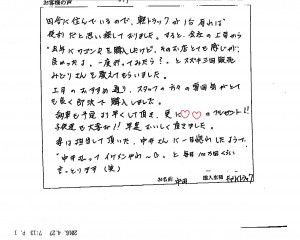 お客様の声
田舎に住んでいるので、軽トラックが1台有れば
便利だと思い探しておりました。すると、会社の上司から
「去年にワゴンRを購入したけど、そのお店とても感じが
良かったよ。一度行ってみたら?」とスズキ三田販売
みどりさんを教えてもらいました。
上司のおすすめ通り、スタッフの方々の雰囲気がとて
も良く即決で購入しました。
納車も予定より早くして頂き、更に♡♡のプレゼント!!
子供達も大喜び!! 早速おいしく頂きました。
妻は担当して頂いた、中井さんに一目惚れしたようで、
「中井さんってイケメンやわ〜」と毎日
言っとります(笑)
お名前 中田
購入車種 キャリイトラック
2018. 4. 27 7:13 P. 1